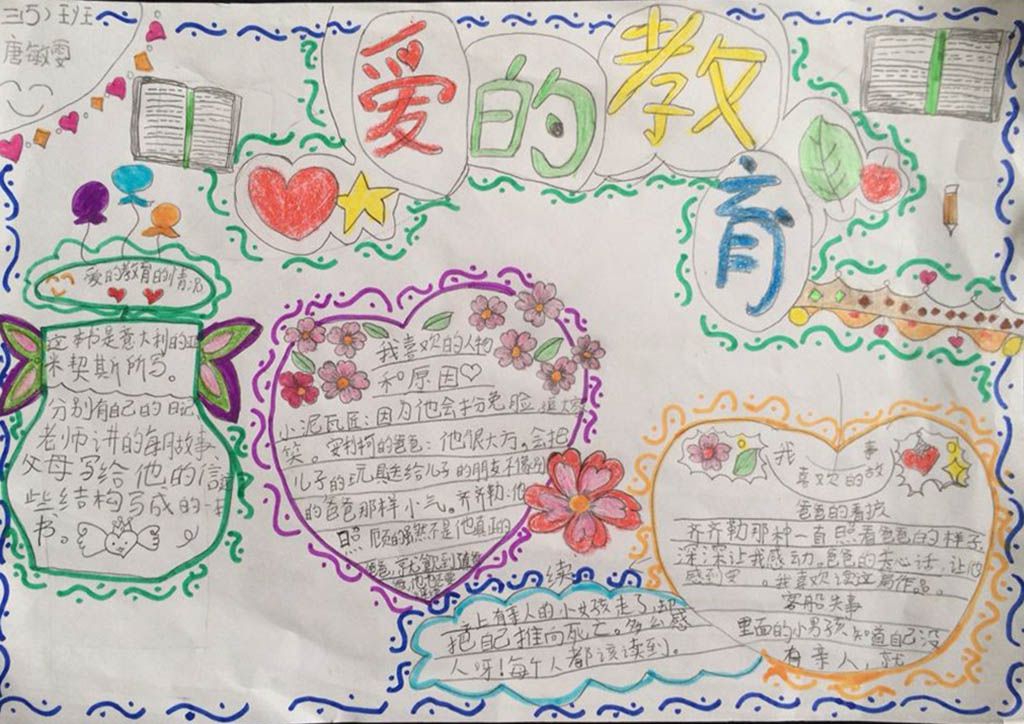 三(5)班
唐敏雯
爱的教育
爱的教育的情况
这本书是意大利的亚
米契斯所写。
分别有自己的日记
老师讲的每月故事
父母写给他的信
些结构写成的一
书。
我喜欢的人物
和原因
小泥瓦匠:因为他会扮兔脸逗大家
笑。安利柯的爸爸:他很大方,会把
儿子的玩具送给儿子的朋友不像别
的爸爸那样小气。齐齐勒:他
照顾的虽然不是他真正的
我喜欢的故事
爸爸的看护
齐齐勒那种一直照看爸爸的样子,
深深让我感动。爸爸的关心话,让他
感到 。我喜欢读这篇作品。
客船失事
里面的小男孩,知道自己没
有亲人,就
续
让有亲人的小女孩走了,却
把自己推向死亡。多么感
人呀!每个人都该读到。